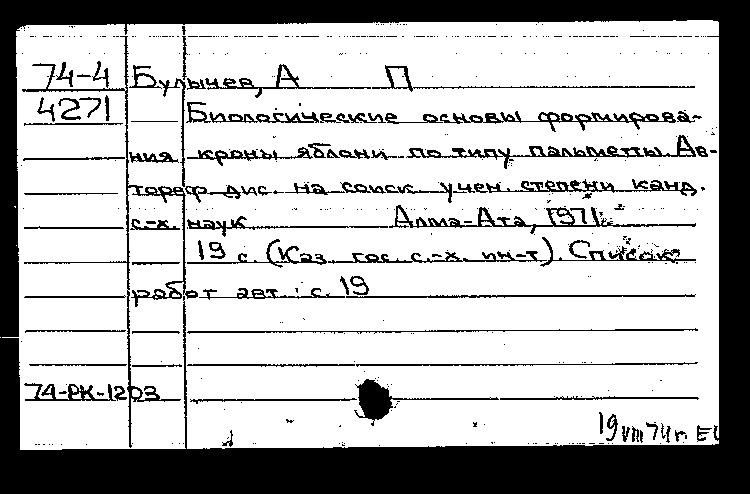 74-4 Булычев, А П
4271 Биологические основы формирова-
ния кроны яблони по типу пальметты. Ав-
тореф. дис. на соиск. учен. степени канд.
с.-х. наук Алма-Ата, 1971.
19 с. (Каз. гос. с.-х. ин-т). Список
работ авт.: с. 19
74-РК-1203
19 VIII 74 г.